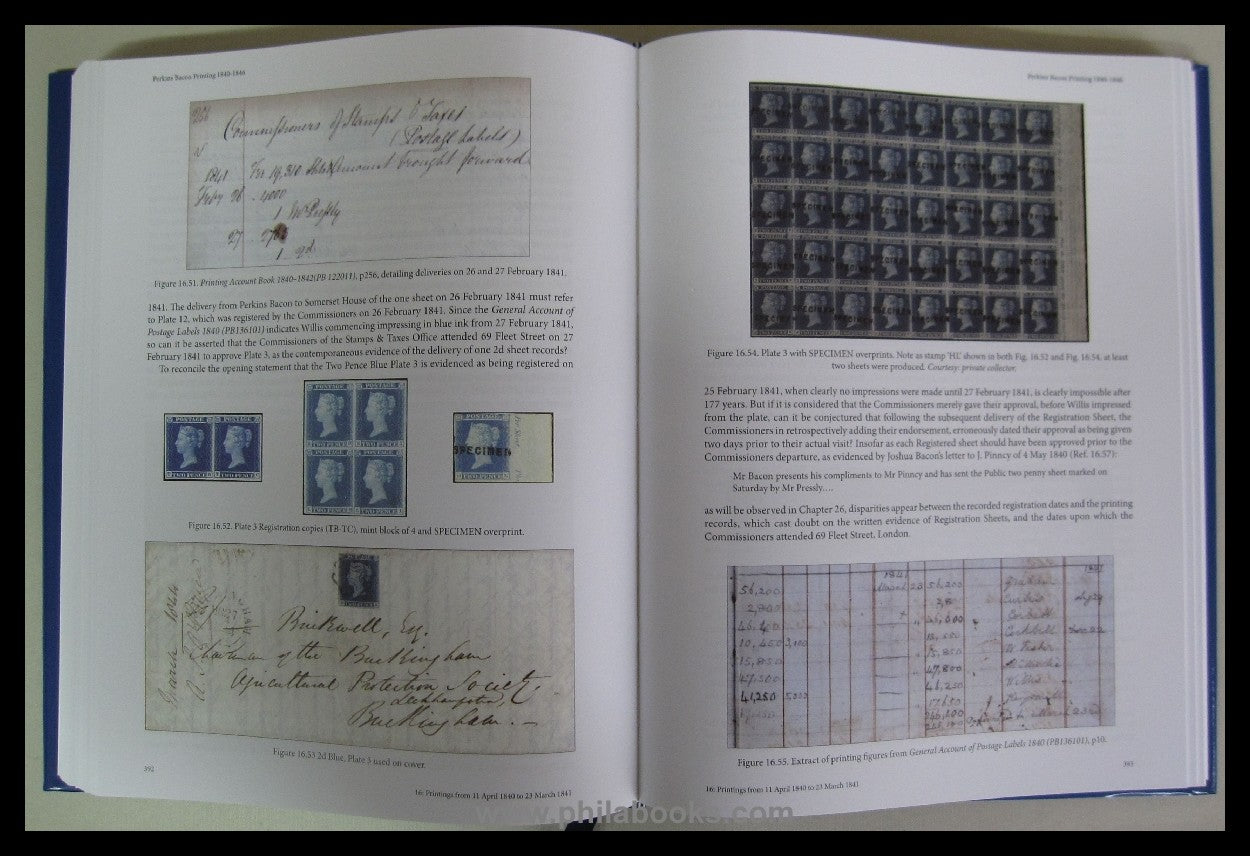 Perkins Bacon Printing 1840-1846
Commissioners of Stamps & Taxes
(Postage Labels)
1841
For 19,310 Amount brought forward
Feby 26 4000
1 Mr Pressly
27
Figure 16.51. Printing Account Book 1840–1842(PB 122011), p256, detailing deliveries on 26 and 27 February 1841.
1841. The delivery from Perkins Bacon to Somerset House of the one sheet on 26 February 1841 must refer
to Plate 12, which was registered by the Commissioners on 26 February 1841. Since the General Account of
Postage Labels 1840 (PB136101) indicates Willis commencing impressing in blue ink from 27 February 1841,
so can it be asserted that the Commissioners of the Stamps & Taxes Office attended 69 Fleet Street on 27
February 1841 to approve Plate 3, as the contemporaneous evidence of the delivery of one 2d sheet records?
To reconcile the opening statement that the Two Pence Blue Plate 3 is evidenced as being registered on
POSTAGE POSTAGE
TWO PENCE TWO PENCE
POSTAGE POSTAGE
TWO PENCE TWO PENCE
POSTAGE POSTAGE
TWO PENCE TWO PENCE
POSTAGE
SPECIMEN
Figure 16.52. Plate 3 Registration copies (TB-TC), mint block of 4 and SPECIMEN overprint.
March 1844
Brickwell, Esq.
Chairman of the Buckingham
Agricultural Protection Society
Leckhampstead,
Buckingham.
Figure 16.53 2d Blue, Plate 3 used on cover.
392
16: Printings from 11 April 1840 to 23 March 1841
Perkins Bacon Printing 1840-1846
SPECIMEN
Figure 16.54. Plate 3 with SPECIMEN overprints. Note as stamp 'HL' shown in both Fig. 16.52 and Fig. 16.54, at least
two sheets were produced. Courtesy: private collector.
25 February 1841, when clearly no impressions were made until 27 February 1841, is clearly impossible after
177 years. But if it is considered that the Commissioners merely gave their approval, before Willis impressed
from the plate, can it be conjectured that following the subsequent delivery of the Registration Sheet, the
Commissioners in retrospectively adding their endorsement, erroneously dated their approval as being given
two days prior to their actual visit? Insofar as each Registered sheet should have been approved prior to the
Commissioners departure, as evidenced by Joshua Bacon's letter to J. Pinncy of 4 May 1840 (Ref. 16:57):
Mr Bacon presents his compliments to Mr Pinncy and has sent the Public two penny sheet marked on
Saturday by Mr Pressly....
as will be observed in Chapter 26, disparities appear between the recorded registration dates and the printing
records, which cast doubt on the written evidence of Registration Sheets, and the dates upon which the
Commissioners attended 69 Fleet Street, London.
1841
56,200 March 23 56,200
2,800
46,400
10,450 3,100 Corbett
15,850 15,850
47,500 47,800
41,250 46,250 Willis
Figure 16.55. Extract of printing figures from General Account of Postage Labels 1840 (PB136101), p10.
393
16: Printings from 11 April 1840 to 23 March 1841
www.philabooks.com